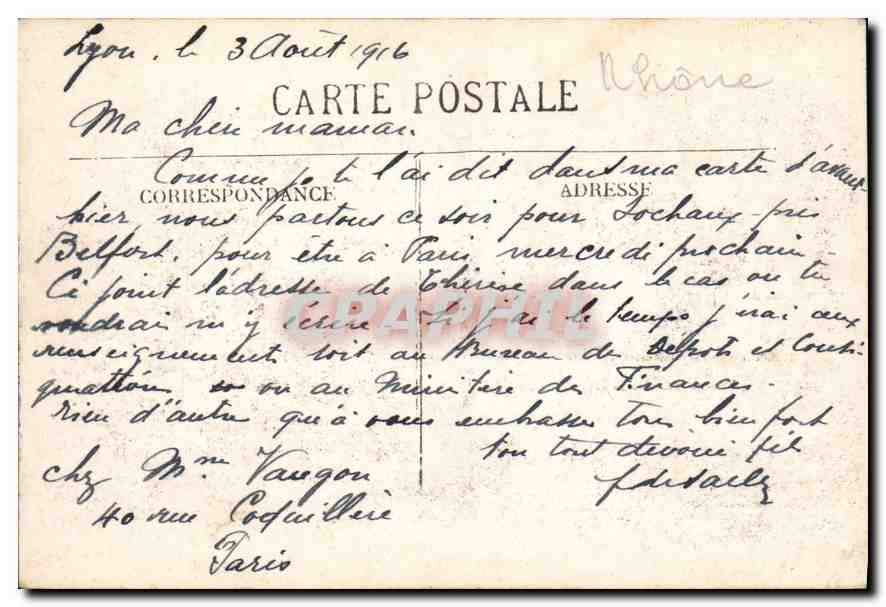 Lyon. le 3 Août 1916
Rhône
CARTE POSTALE
Ma chère maman.
Comme je te l'ai dit dans ma carte d'avant
CORRESPONDANCE ADRESSE
hier nous partons ce soir pour Sochaux près
Belfort, pour être à Paris mercredi prochain -
Ci joint l'adresse de Thérèse dans le cas ou tu
voudrais m'y écrire. Si j'ai le temps j'irai aux
CPAPHIL
renseignements soit au Bureau des Dépots et Consi-
gnations ou au Ministère des Finances.
rien d'autre qu'à vous embrasser tous bien fort
ton tout dévoué fils
chez Mme Vaugon
40 rue Coquillère
Paris